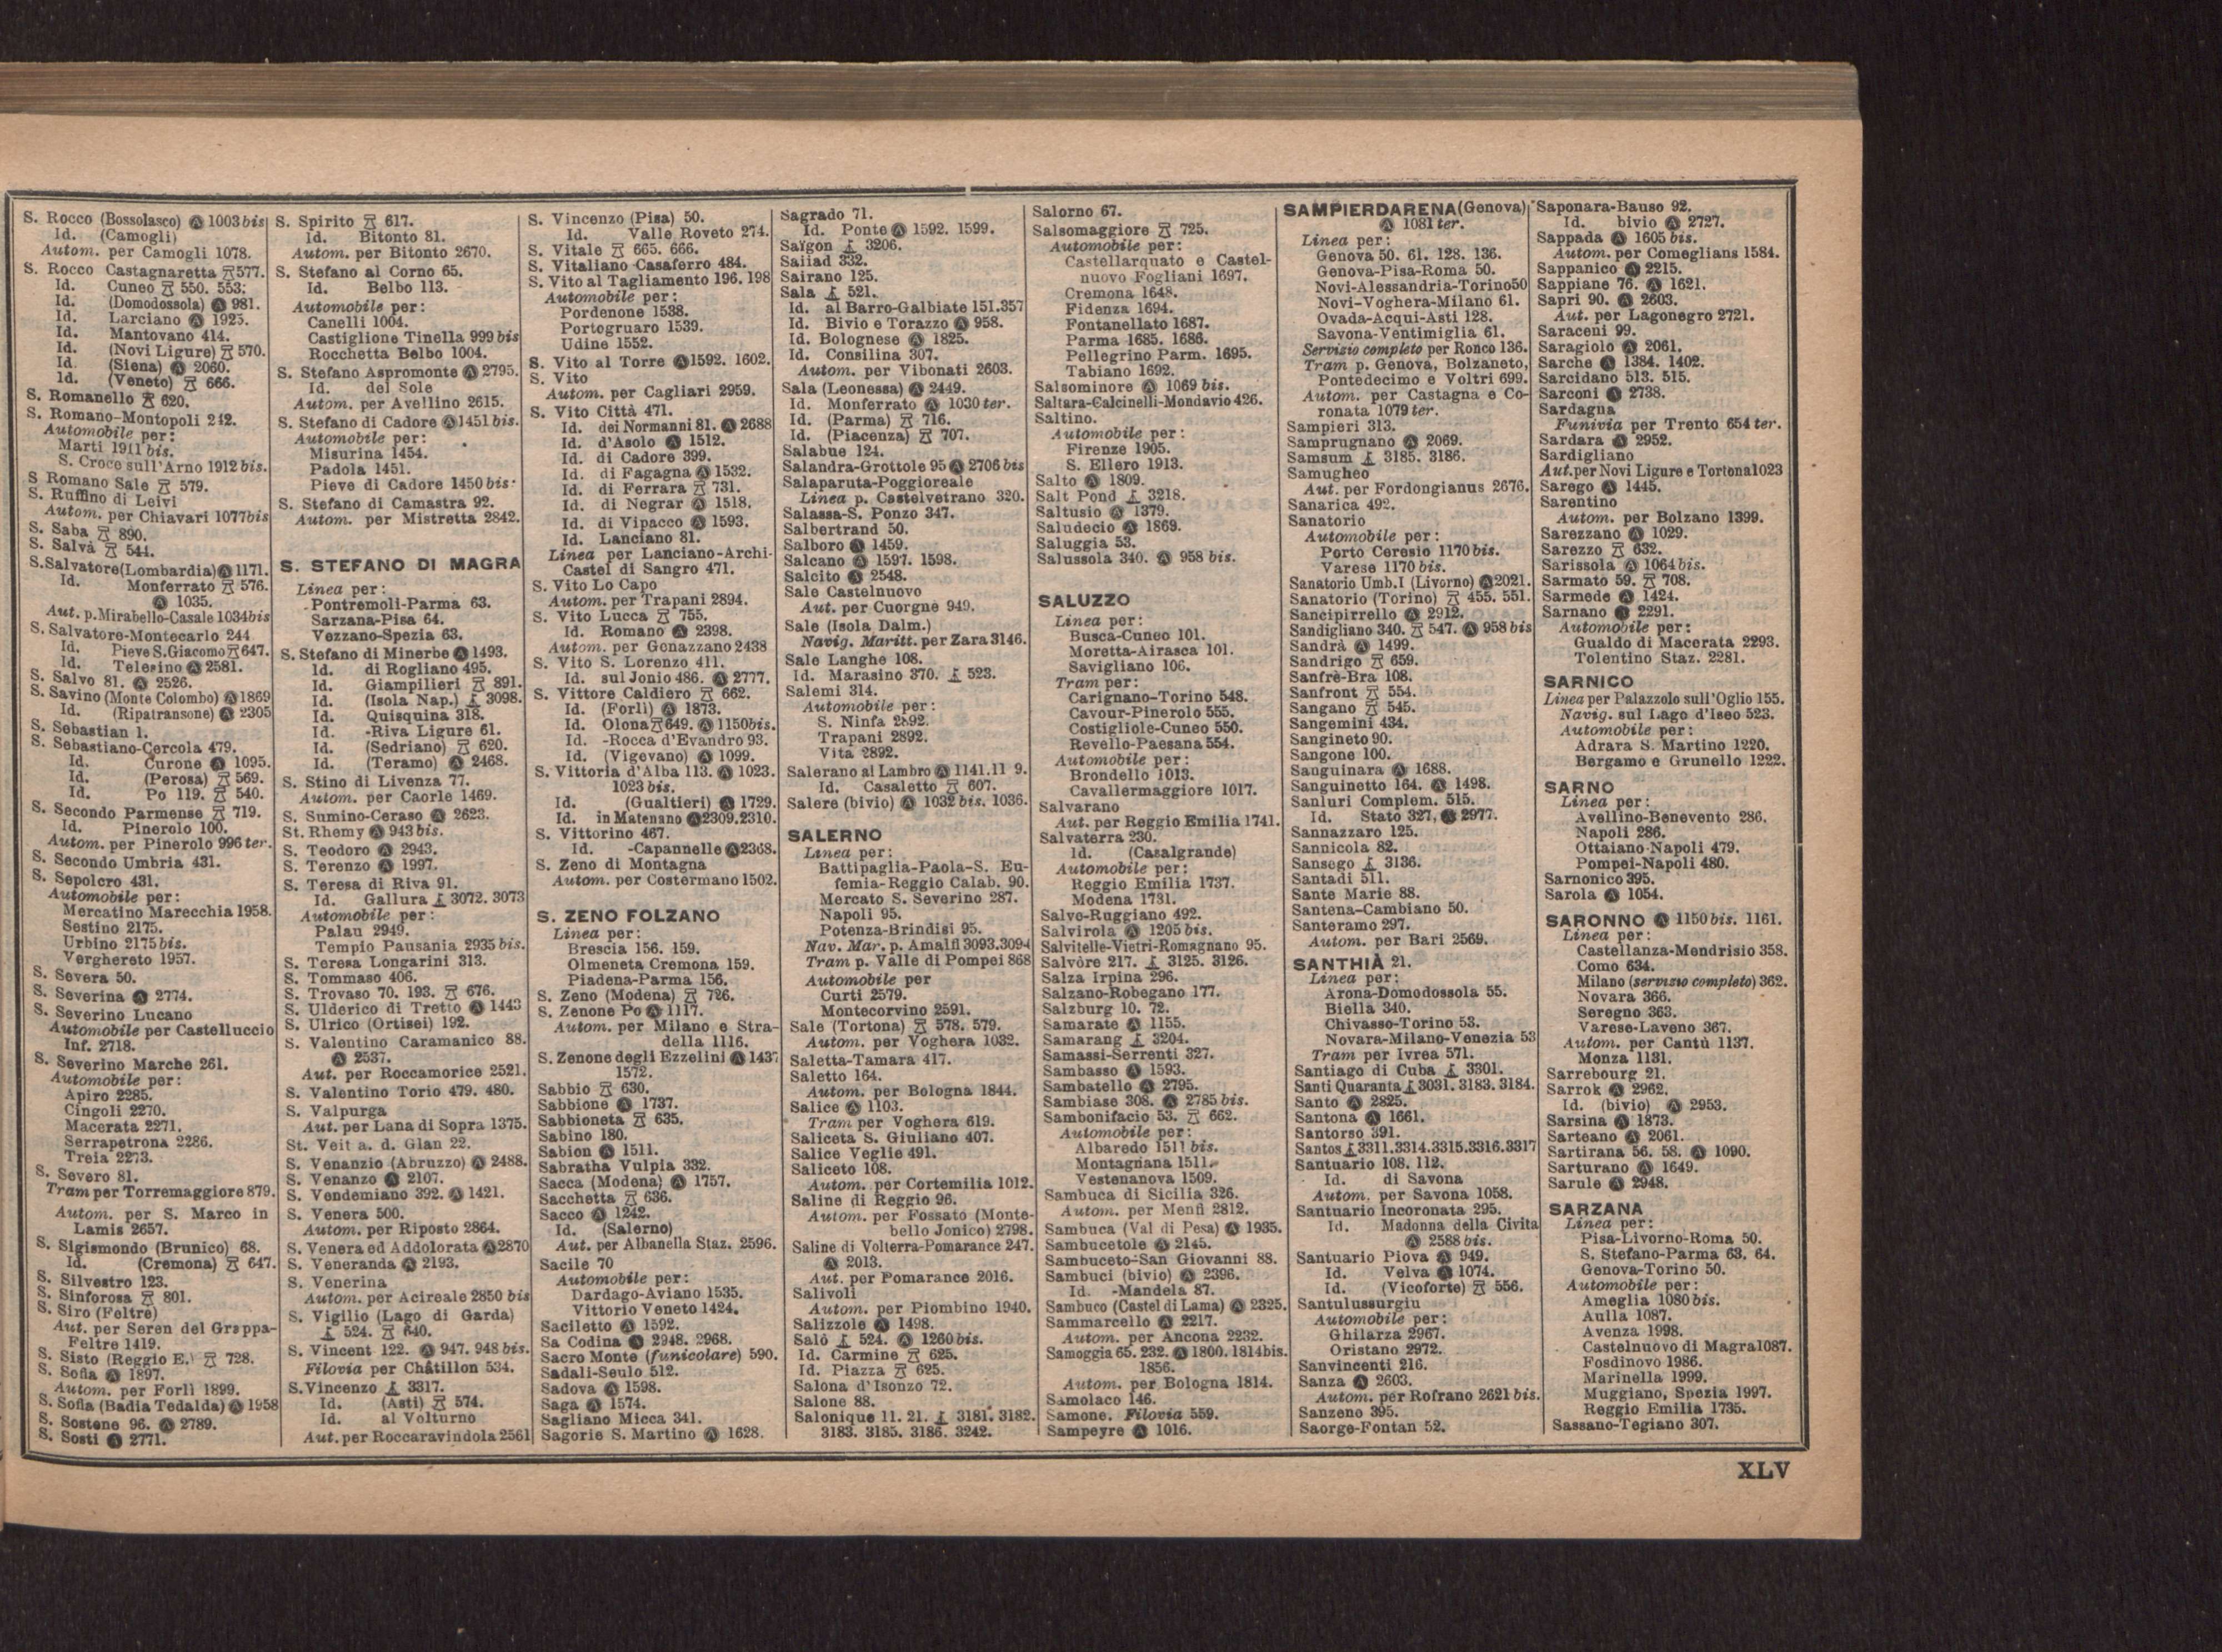 S. Rocco (Bossolasco) Ⓐ 1003 bis
Id. (Camogli)
Autom. per Camogli 1078.
S. Rocco Castagnaretta 577.
Id. Cuneo 550. 553.
Id. (Domodossola) Ⓐ 981.
Id. Larciano Ⓐ 1923.
Id. Mantovano 414.
Id. (Novi Ligure) 570.
Id. (Siena) Ⓐ 2060.
Id. (Veneto) 666.
S. Romanello 620.
S. Romano-Montopoli 242.
Automobile per:
Marti 1911 bis.
S. Croce sull'Arno 1912 bis.
S Romano Sale 579.
S. Ruffino di Leivi
Autom. per Chiavari 1077 bis
S. Saba 890.
S. Salvà 544.
S. Salvatore (Lombardia) Ⓐ 1171.
Id. Monferrato 576.
Ⓐ 1035.
Aut. p. Mirabello-Casale 1034 bis
S. Salvatore-Montecarlo 244
Id. Pieve S. Giacomo 647.
Id. Telesino Ⓐ 2581.
S. Salvo 81. Ⓐ 2526.
S. Savino (Monte Colombo) Ⓐ 1869
Id. (Ripatransone) Ⓐ 2305
S. Sebastian 1.
S. Sebastiano-Cercola 479.
Id. Curone Ⓐ 1095.
Id. (Perosa) 569.
Id. Po 119. 540.
S. Secondo Parmense 719.
Id. Pinerolo 100.
Autom. per Pinerolo 996 ter.
S. Secondo Umbria 431.
S. Sepolcro 431.
Automobile per:
Mercatino Marecchia 1958.
Sestino 2175.
Urbino 2175 bis.
Verghereto 1957.
S. Severa 50.
S. Severina Ⓐ 2774.
S. Severino Lucano
Automobile per Castelluccio
Inf. 2718.
S. Severino Marche 261.
Automobile per:
Apiro 2285.
Cingoli 2270.
Macerata 2271.
Serrapetrona 2286.
Treia 2273.
S. Severo 81.
Tram per Torremaggiore 879.
Autom. per S. Marco in
Lamis 2657.
S. Sigismondo (Brunico) 68.
Id. (Cremona) 647.
S. Silvestro 123.
S. Sinforosa 801.
S. Siro (Feltre)
Aut. per Seren del Grappa-
Feltre 1419.
S. Sisto (Reggio E.) 728.
S. Sofia Ⓐ 1897.
Autom. per Forlì 1899.
S. Sofia (Badia Tedalda) Ⓐ 1958
S. Sostene 96. Ⓐ 2789.
S. Sosti Ⓐ 2771.
S. Spirito 617.
Id. Bitonto 81.
Autom. per Bitonto 2670.
S. Stefano al Corno 65.
Id. Belbo 113.
Automobile per:
Canelli 1004.
Castiglione Tinella 999 bis
Rocchetta Belbo 1004.
S. Stefano Aspromonte Ⓐ 2795.
Id. del Sole
Autom. per Avellino 2615.
S. Stefano di Cadore Ⓐ 1451 bis.
Automobile per:
Misurina 1454.
Padola 1451.
Pieve di Cadore 1450 bis.
S. Stefano di Camastra 92.
Autom. per Mistretta 2842.
S. STEFANO DI MAGRA
Linea per:
Pontremoli-Parma 63.
Sarzana-Pisa 64.
Vezzano-Spezia 63.
S. Stefano di Minerbe Ⓐ 1493.
Id. di Rogliano 495.
Id. Giampilieri 891.
Id. (Isola Nap.) 3098.
Id. Quisquina 318.
Id. -Riva Ligure 61.
Id. (Sedriano) 620.
Id. (Teramo) Ⓐ 2468.
S. Stino di Livenza 77.
Autom. per Caorle 1469.
S. Sumino-Ceraso Ⓐ 2623.
St. Rhemy Ⓐ 943 bis.
S. Teodoro Ⓐ 2943.
S. Terenzo Ⓐ 1997.
S. Teresa di Riva 91.
Id. Gallura 3072. 3073
Automobile per:
Palau 2949.
Tempio Pausania 2935 bis.
S. Teresa Longarini 313.
S. Tommaso 406.
S. Trovaso 70. 193. 676.
S. Ulderico di Tretto Ⓐ 1443
S. Ulrico (Ortisei) 192.
S. Valentino Caramanico 88.
Ⓐ 2537.
Aut. per Roccamorice 2521.
S. Valentino Torio 479. 480.
S. Valpurga
Aut. per Lana di Sopra 1375.
St. Veit a. d. Glan 22.
S. Venanzio (Abruzzo) Ⓐ 2488.
S. Venanzo Ⓐ 2107.
S. Vendemiano 392. Ⓐ 1421.
S. Venera 500.
Autom. per Riposto 2864.
S. Venera ed Addolorata Ⓐ 2870
S. Veneranda Ⓐ 2193.
S. Venerina
Autom. per Acireale 2850 bis
S. Vigilio (Lago di Garda)
524. 640.
S. Vincent 122. Ⓐ 947. 948 bis.
Filovia per Châtillon 534.
S. Vincenzo 3317.
Id. (Asti) 574.
Id. al Volturno
Aut. per Roccaravindola 2561
S. Vincenzo (Pisa) 50.
Id. Valle Roveto 274.
S. Vitale 665. 666.
S. Vitaliano Casaferro 484.
S. Vito al Tagliamento 196. 198
Automobile per:
Pordenone 1538.
Portogruaro 1539.
Udine 1552.
S. Vito al Torre Ⓐ 1592. 1602.
S. Vito
Autom. per Cagliari 2959.
S. Vito Città 471.
Id. dei Normanni 81. Ⓐ 2688
Id. d'Asolo Ⓐ 1512.
Id. di Cadore 399.
Id. di Fagagna Ⓐ 1532.
Id. di Ferrara 731.
Id. di Negrar Ⓐ 1518.
Id. di Vipacco Ⓐ 1593.
Id. Lanciano 81.
Linea per Lanciano-Archi-
Castel di Sangro 471.
S. Vito Lo Capo
Autom. per Trapani 2894.
S. Vito Lucca 755.
Id. Romano Ⓐ 2398.
Autom. per Genazzano 2438
S. Vito S. Lorenzo 411.
Id. sul Jonio 486. Ⓐ 2777.
S. Vittore Caldiero 662.
Id. (Forlì) Ⓐ 1873.
Id. Olona 649. Ⓐ 1150 bis.
Id. -Rocca d'Evandro 93.
Id. (Vigevano) Ⓐ 1099.
S. Vittoria d'Alba 113. Ⓐ 1023.
1023 bis.
Id. (Gualtieri) Ⓐ 1729.
Id. in Matenano Ⓐ 2309. 2310.
S. Vittorino 467.
Id. -Capannelle Ⓐ 2368.
S. Zeno di Montagna
Autom. per Costermano 1502.
S. ZENO FOLZANO
Linea per:
Brescia 156. 159.
Olmeneta Cremona 159.
Piadena-Parma 156.
S. Zeno (Modena) 726.
S. Zenone Po Ⓐ 1117.
Autom. per Milano e Stra-
della 1116.
S. Zenone degli Ezzelini Ⓐ 1437
1572.
Sabbio 630.
Sabbione Ⓐ 1737.
Sabbioneta 635.
Sabino 180.
Sabion Ⓐ 1511.
Sabratha Vulpia 332.
Sacca (Modena) Ⓐ 1757.
Sacchetta 636.
Sacco Ⓐ 1242.
Id. (Salerno)
Aut. per Albanella Staz. 2596.
Sacile 70
Automobile per:
Dardago-Aviano 1535.
Vittorio Veneto 1424.
Saciletto Ⓐ 1592.
Sa Codina Ⓐ 2948. 2968.
Sacro Monte (funicolare) 590.
Sadali-Seulo 512.
Sadova Ⓐ 1598.
Saga Ⓐ 1574.
Sagliano Micca 341.
Sagorie S. Martino Ⓐ 1628.
Sagrado 71.
Id. Ponte Ⓐ 1592. 1599.
Saïgon 3206.
Saiiad 332.
Sairano 125.
Sala 521.
Id. al Barro-Galbiate 151. 357
Id. Bivio e Torazzo Ⓐ 958.
Id. Bolognese Ⓐ 1825.
Id. Consilina 307.
Autom. per Vibonati 2603.
Sala (Leonessa) Ⓐ 2449.
Id. Monferrato Ⓐ 1030 ter.
Id. (Parma) 716.
Id. (Piacenza) 707.
Salabue 124.
Salandra-Grottole 95 Ⓐ 2706 bis
Salaparuta-Poggioreale
Linea p. Castelvetrano 320.
Salassa-S. Ponzo 347.
Salbertrand 50.
Salboro Ⓐ 1459.
Salcano Ⓐ 1597. 1598.
Salcito Ⓐ 2548.
Sale Castelnuovo
Aut. per Cuorgnè 949.
Sale (Isola Dalm.)
Navig. Maritt. per Zara 3146.
Sale Langhe 108.
Id. Marasino 370. 523.
Salemi 314.
Automobile per:
S. Ninfa 2892.
Trapani 2892.
Vita 2892.
Salerano al Lambro Ⓐ 1141.11 9.
Id. Casaletto 607.
Salere (bivio) Ⓐ 1032 bis. 1036.
SALERNO
Linea per:
Battipaglia-Paola-S. Eu-
femia-Reggio Calab. 90.
Mercato S. Severino 287.
Napoli 95.
Potenza-Brindisi 95.
Nav. Mar. p. Amalfi 3093.3094
Tram p. Valle di Pompei 868
Automobile per
Curti 2579.
Montecorvino 2591.
Sale (Tortona) 578. 579.
Autom. per Voghera 1032.
Saletta-Tamara 417.
Saletto 164.
Autom. per Bologna 1844.
Salice Ⓐ 1103.
Tram per Voghera 619.
Saliceta S. Giuliano 407.
Salice Veglie 491.
Saliceto 108.
Autom. per Cortemilia 1012.
Saline di Reggio 96.
Autom. per Fossato (Monte-
bello Jonico) 2798.
Saline di Volterra-Pomarance 247.
Ⓐ 2013.
Aut. per Pomarance 2016.
Salivoli
Autom. per Piombino 1940.
Salizzole Ⓐ 1498.
Salò 524. Ⓐ 1260 bis.
Id. Carmine 625.
Id. Piazza 625.
Salona d'Isonzo 72.
Salone 88.
Salonique 11. 21. 3181. 3182.
3183. 3185. 3186. 3242.
Salorno 67.
Salsomaggiore 725.
Automobile per:
Castellarquato e Castel-
nuovo Fogliani 1697.
Cremona 1648.
Fidenza 1694.
Fontanellato 1687.
Parma 1685. 1686.
Pellegrino Parm. 1695.
Tabiano 1692.
Salsominore Ⓐ 1069 bis.
Saltara-Calcinelli-Mondavio 426.
Saltino.
Automobile per:
Firenze 1905.
S. Ellero 1913.
Salto Ⓐ 1809.
Salt Pond 3218.
Saltusio Ⓐ 1379.
Saludecio Ⓐ 1869.
Saluggia 53.
Salussola 340. Ⓐ 958 bis.
SALUZZO
Linea per:
Busca-Cuneo 101.
Moretta-Airasca 101.
Savigliano 106.
Tram per:
Carignano-Torino 548.
Cavour-Pinerolo 555.
Costigliole-Cuneo 550.
Revello-Paesana 554.
Automobile per:
Brondello 1013.
Cavallermaggiore 1017.
Salvarano
Aut. per Reggio Emilia 1741.
Salvaterra 230.
Id. (Casalgrande)
Automobile per:
Reggio Emilia 1737.
Modena 1731.
Salve-Ruggiano 492.
Salvirola Ⓐ 1205 bis.
Salvitelle-Vietri-Romagnano 95.
Salvòre 217. 3125. 3126.
Salza Irpina 296.
Salzano-Robegano 177.
Salzburg 10. 72.
Samarate Ⓐ 1155.
Samarang 3204.
Samassi-Serrenti 327.
Sambasso Ⓐ 1593.
Sambatello Ⓐ 2795.
Sambiase 308. Ⓐ 2785 bis.
Sambonifacio 53. 662.
Automobile per:
Albaredo 1511 bis.
Montagnana 1511.
Vestenanova 1509.
Sambuca di Sicilia 326.
Autom. per Menfi 2812.
Sambuca (Val di Pesa) Ⓐ 1935.
Sambucetole Ⓐ 2145.
Sambuceto-San Giovanni 88.
Sambuci (bivio) Ⓐ 2396.
Id. -Mandela 87.
Sambuco (Castel di Lama) Ⓐ 2325.
Sammarcello Ⓐ 2217.
Autom. per Ancona 2232.
Samoggia 65. 232. Ⓐ 1800. 1814bis.
1856.
Autom. per Bologna 1814.
Samolaco 146.
Samone. Filovia 559.
Sampeyre Ⓐ 1016.
SAMPIERDARENA (Genova)
Ⓐ 1081 ter.
Linea per:
Genova 50. 61. 128. 136.
Genova-Pisa-Roma 50.
Novi-Alessandria-Torino 50
Novi-Voghera-Milano 61.
Ovada-Acqui-Asti 128.
Savona-Ventimiglia 61.
Servizio completo per Ronco 136.
Tram p. Genova, Bolzaneto,
Pontedecimo e Voltri 699.
Autom. per Castagna e Co-
ronata 1079 ter.
Sampieri 313.
Samprugnano Ⓐ 2069.
Samsum 3185. 3186.
Samugheo
Aut. per Fordongianus 2676.
Sanarica 492.
Sanatorio
Automobile per:
Porto Ceresio 1170 bis.
Varese 1170 bis.
Sanatorio Umb. I (Livorno) Ⓐ 2021.
Sanatorio (Torino) 455. 551.
Sancipirrello Ⓐ 2912.
Sandigliano 340. 547. Ⓐ 958 bis
Sandrà Ⓐ 1499.
Sandrigo 659.
Sanfrè-Bra 108.
Sanfront 554.
Sangano 545.
Sangemini 434.
Sangineto 90.
Sangone 100.
Sanguinara Ⓐ 1688.
Sanguinetto 164. Ⓐ 1498.
Sanluri Complem. 515.
Id. Stato 327. Ⓐ 2977.
Sannazzaro 125.
Sannicola 82.
Sansego 3136.
Santadi 511.
Sante Marie 88.
Santena-Cambiano 50.
Santeramo 297.
Autom. per Bari 2569.
SANTHIÀ 21.
Linea per:
Arona-Domodossola 55.
Biella 340.
Chivasso-Torino 53.
Novara-Milano-Venezia 53
Tram per Ivrea 571.
Santiago di Cuba 3301.
Santi Quaranta 3031. 3183. 3184.
Santo Ⓐ 2825.
Santona Ⓐ 1661.
Santorso 391.
Santos 3311.3314.3315.3316.3317
Santuario 108. 112.
Id. di Savona
Autom. per Savona 1058.
Santuario Incoronata 295.
Id. Madonna della Civita
Ⓐ 2588 bis.
Santuario Piova Ⓐ 949.
Id. Velva Ⓐ 1074.
Id. (Vicoforte) 556.
Santulussurgiu
Automobile per:
Ghilarza 2967.
Oristano 2972.
Sanvincenti 216.
Sanza Ⓐ 2603.
Autom. per Rofrano 2621 bis.
Sanzeno 395.
Saorge-Fontan 52.
Saponara-Bauso 92.
Id. bivio Ⓐ 2727.
Sappada Ⓐ 1605 bis.
Autom. per Comeglians 1584.
Sappanico Ⓐ 2215.
Sappiane 76. Ⓐ 1621.
Sapri 90. Ⓐ 2603.
Aut. per Lagonegro 2721.
Saraceni 99.
Saragiolo Ⓐ 2061.
Sarche Ⓐ 1384. 1402.
Sarcidano 513. 515.
Sarconi Ⓐ 2738.
Sardagna
Funivia per Trento 654 ter.
Sardara Ⓐ 2952.
Sardigliano
Aut. per Novi Ligure e Tortona 1023
Sarego Ⓐ 1445.
Sarentino
Autom. per Bolzano 1399.
Sarezzano Ⓐ 1029.
Sarezzo 632.
Sarissola Ⓐ 1064 bis.
Sarmato 59. 708.
Sarmede Ⓐ 1424.
Sarnano Ⓐ 2291.
Automobile per:
Gualdo di Macerata 2293.
Tolentino Staz. 2281.
SARNICO
Linea per Palazzolo sull'Oglio 155.
Navig. sul Lago d'Iseo 523.
Automobile per:
Adrara S. Martino 1220.
Bergamo e Grunello 1222.
SARNO
Linea per:
Avellino-Benevento 286.
Napoli 286.
Ottaiano-Napoli 479.
Pompei-Napoli 480.
Sarnonico 395.
Sarola Ⓐ 1054.
SARONNO Ⓐ 1150 bis. 1161.
Linea per:
Castellanza-Mendrisio 358.
Como 634.
Milano (servizio completo) 362.
Novara 366.
Seregno 363.
Varese-Laveno 367.
Autom. per Cantù 1137.
Monza 1131.
Sarrebourg 21.
Sarrok Ⓐ 2962.
Id. (bivio) Ⓐ 2953.
Sarsina Ⓐ 1873.
Sarteano Ⓐ 2061.
Sartirana 56. 58. Ⓐ 1090.
Sarturano Ⓐ 1649.
Sarule Ⓐ 2948.
SARZANA
Linea per:
Pisa-Livorno-Roma 50.
S. Stefano-Parma 63. 64.
Genova-Torino 50.
Automobile per:
Ameglia 1080 bis.
Aulla 1087.
Avenza 1998.
Castelnuovo di Magra 1087.
Fosdinovo 1986.
Marinella 1999.
Muggiano, Spezia 1997.
Reggio Emilia 1735.
Sassano-Tegiano 307.
XLV